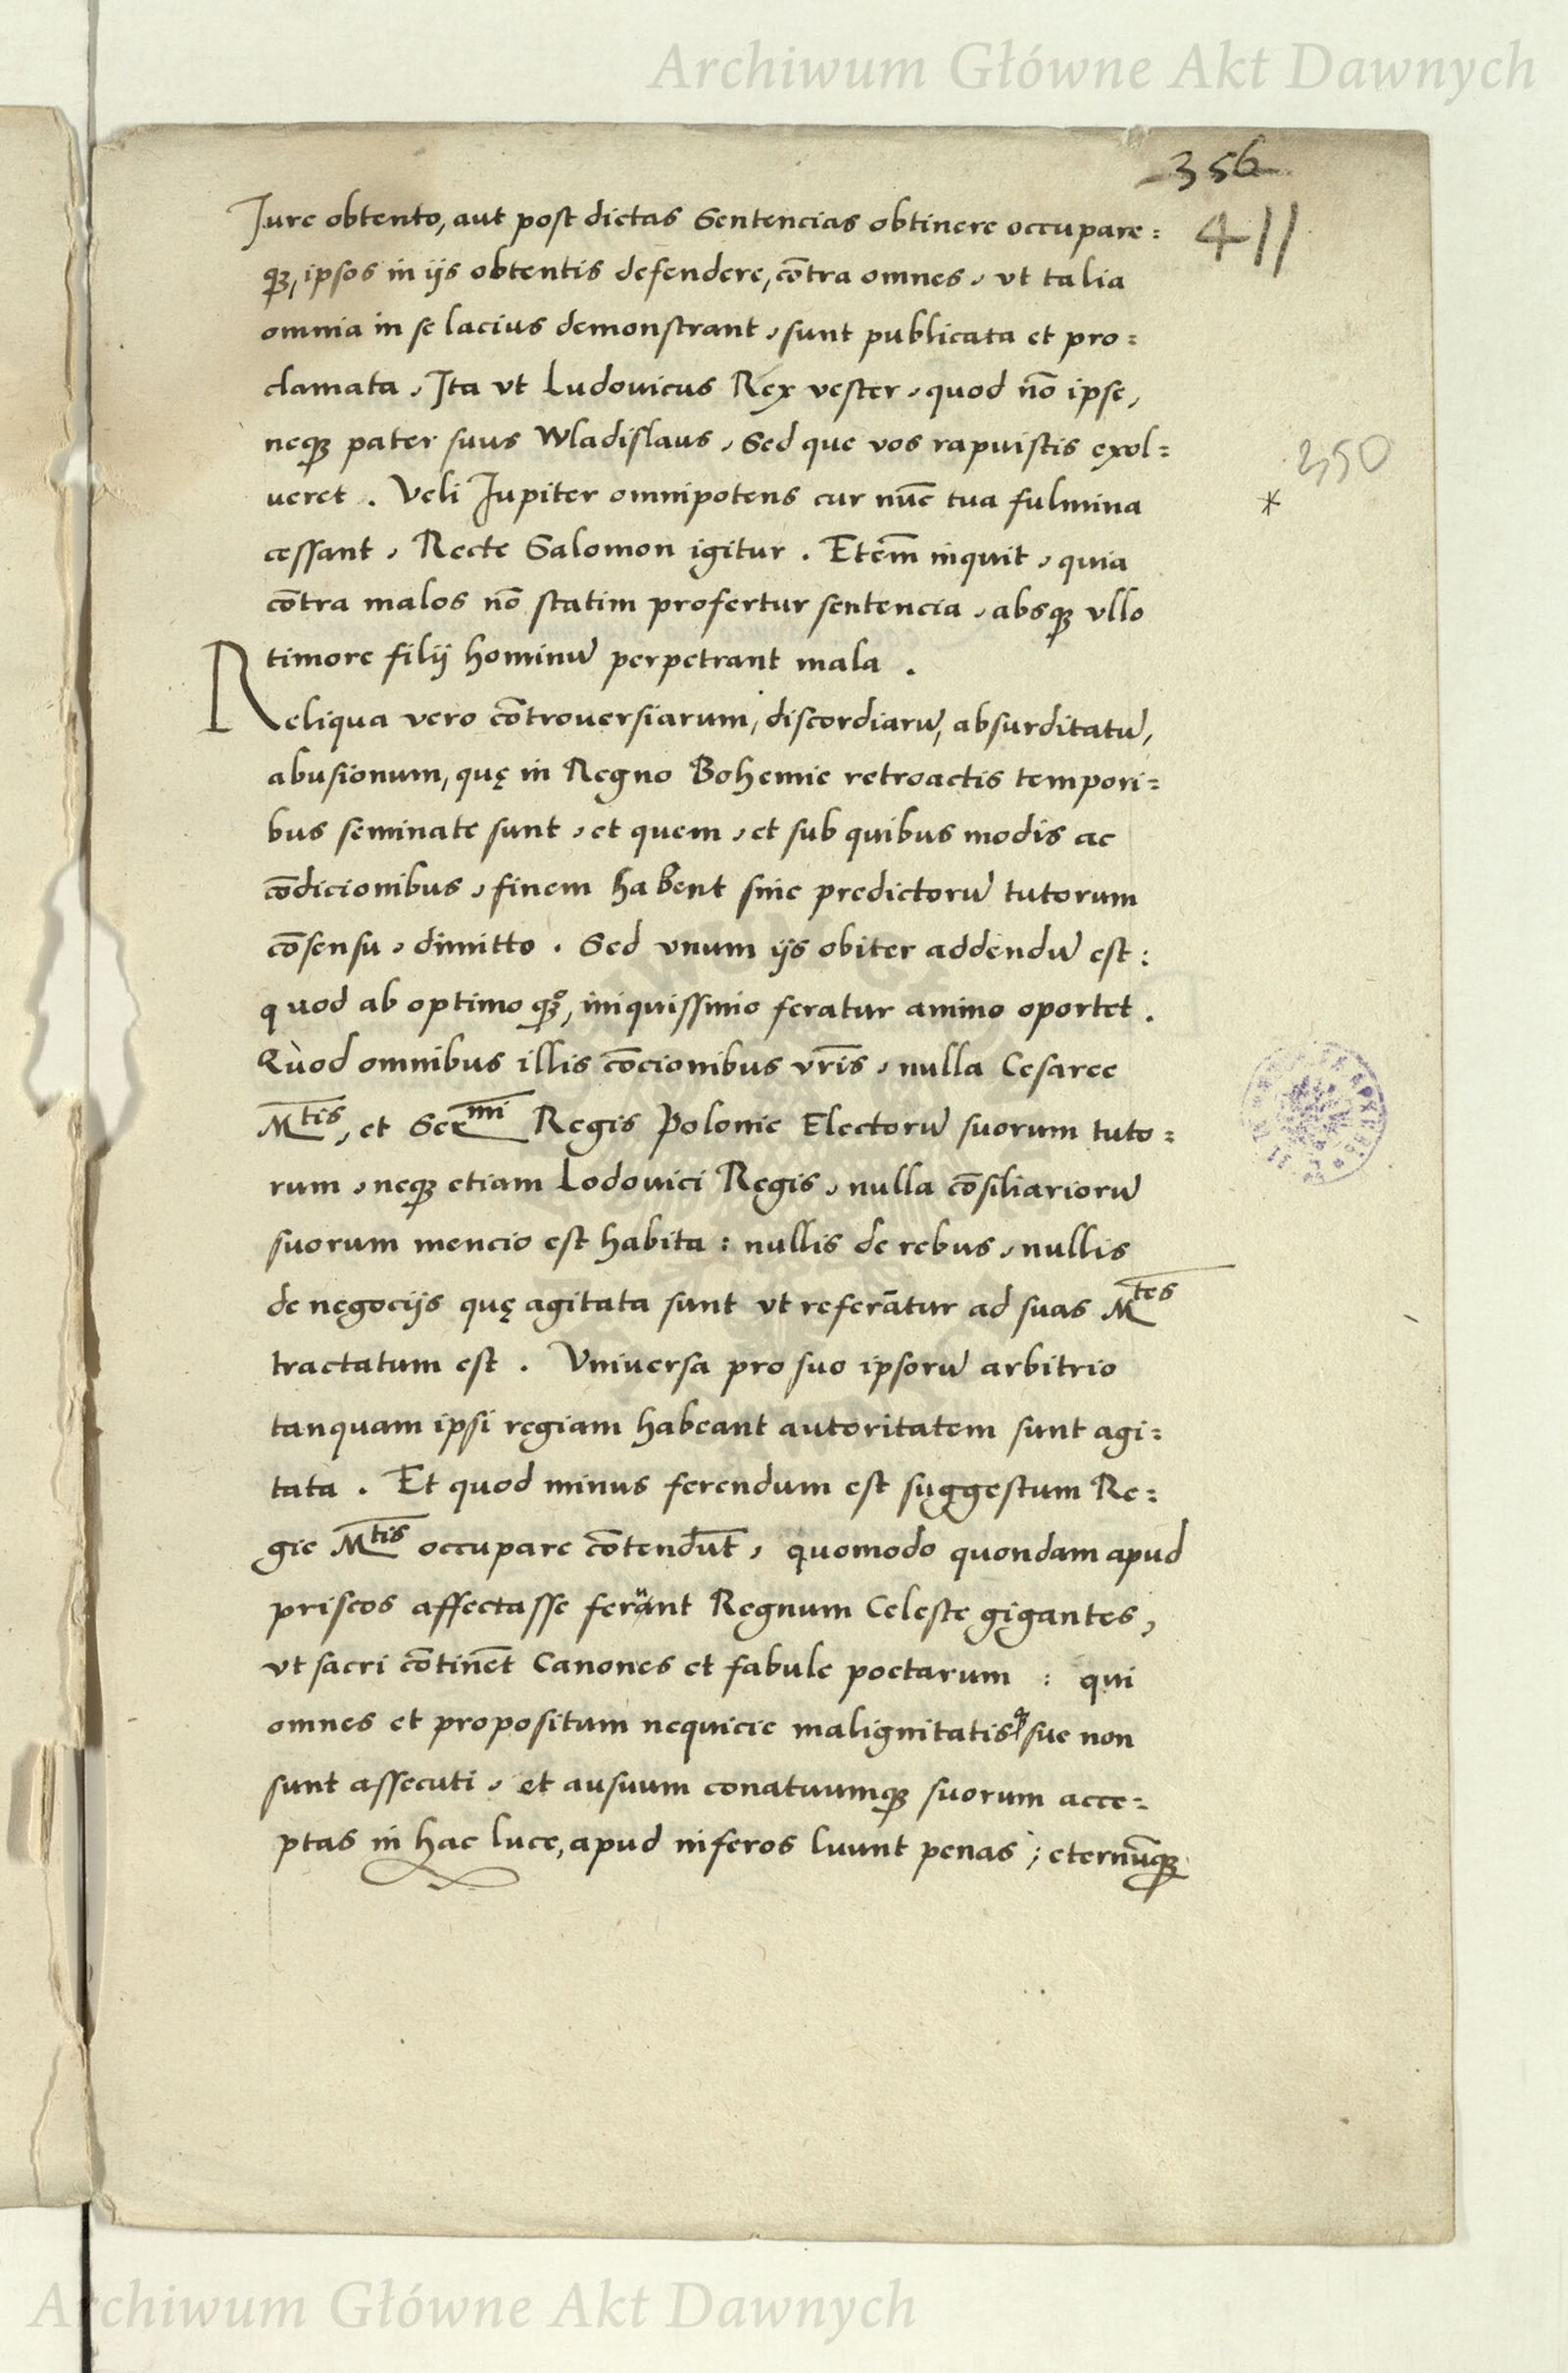 Archiwum Główne Akt Dawnych
356
411
Jure obtento, aut post dictas Sentencias obtinere occupare:
qꝫ, ipsos in ijs obtentis defendere, cōtra omnes, vt talia
omnia in se lacius demonstrant, sunt publicata et pro:
clamata, Ita vt Ludouicus Rex vester, quod nō ipse,
neqꝫ pater suus Wladislaus, Sed que vos rapuistis exol:
350
ueret. Veli Jupiter omnipotens cur nūc tua fulmina
*
cessant, Recte Salomon igitur. Etem̄ inquit, quia
cōtra malos nō statim profertur sentencia, absqꝫ vllo
timore filij hominū perpetrant mala.
Reliqua vero cōtrouersiarum, discordiarū, absurditatū,
abusionum, quę in Regno Bohemie retroactis tempori:
bus seminate sunt, et quem, et sub quibus modis ac
cōdicionibus, finem habent sine predictorū tutorum
cōsensu, dimitto. Sed vnum ijs obiter addendū est:
quod ab optimo qꝫͦ, iniquissimo feratur animo oportet.
Quod omnibus illis cōcionibus vr̄is, nulla Cesaree
Mtis, et Sermi Regis Polonie Electorū suorum tuto:
rum, neqꝫ etiam Lodouici Regis, nulla cōsiliariorū
suorum mencio est habita: nullis de rebus, nullis
de negocijs quę agitata sunt vt referātur ad suas Mtes
tractatum est. Vniuersa pro suo ipsorū arbitrio
tanquam ipsi regiam habeant autoritatem sunt agi:
tata. Et quod minus ferendum est suggestum Re:
gie Mtis occupare cōtendūt, quomodo quondam apud
priscos affectasse ferunt Regnum Celeste gigantes,
vt sacri cōtinēt Canones et fabule poetarum: qui
omnes et propositum nequicie malignitatisqꝫ sue non
sunt assecuti, et ausuum conatuumqꝫ suorum acce:
ptas in hac luce, apud inferos luunt penas; eternūqꝫ
Archiwum Główne Akt Dawnych